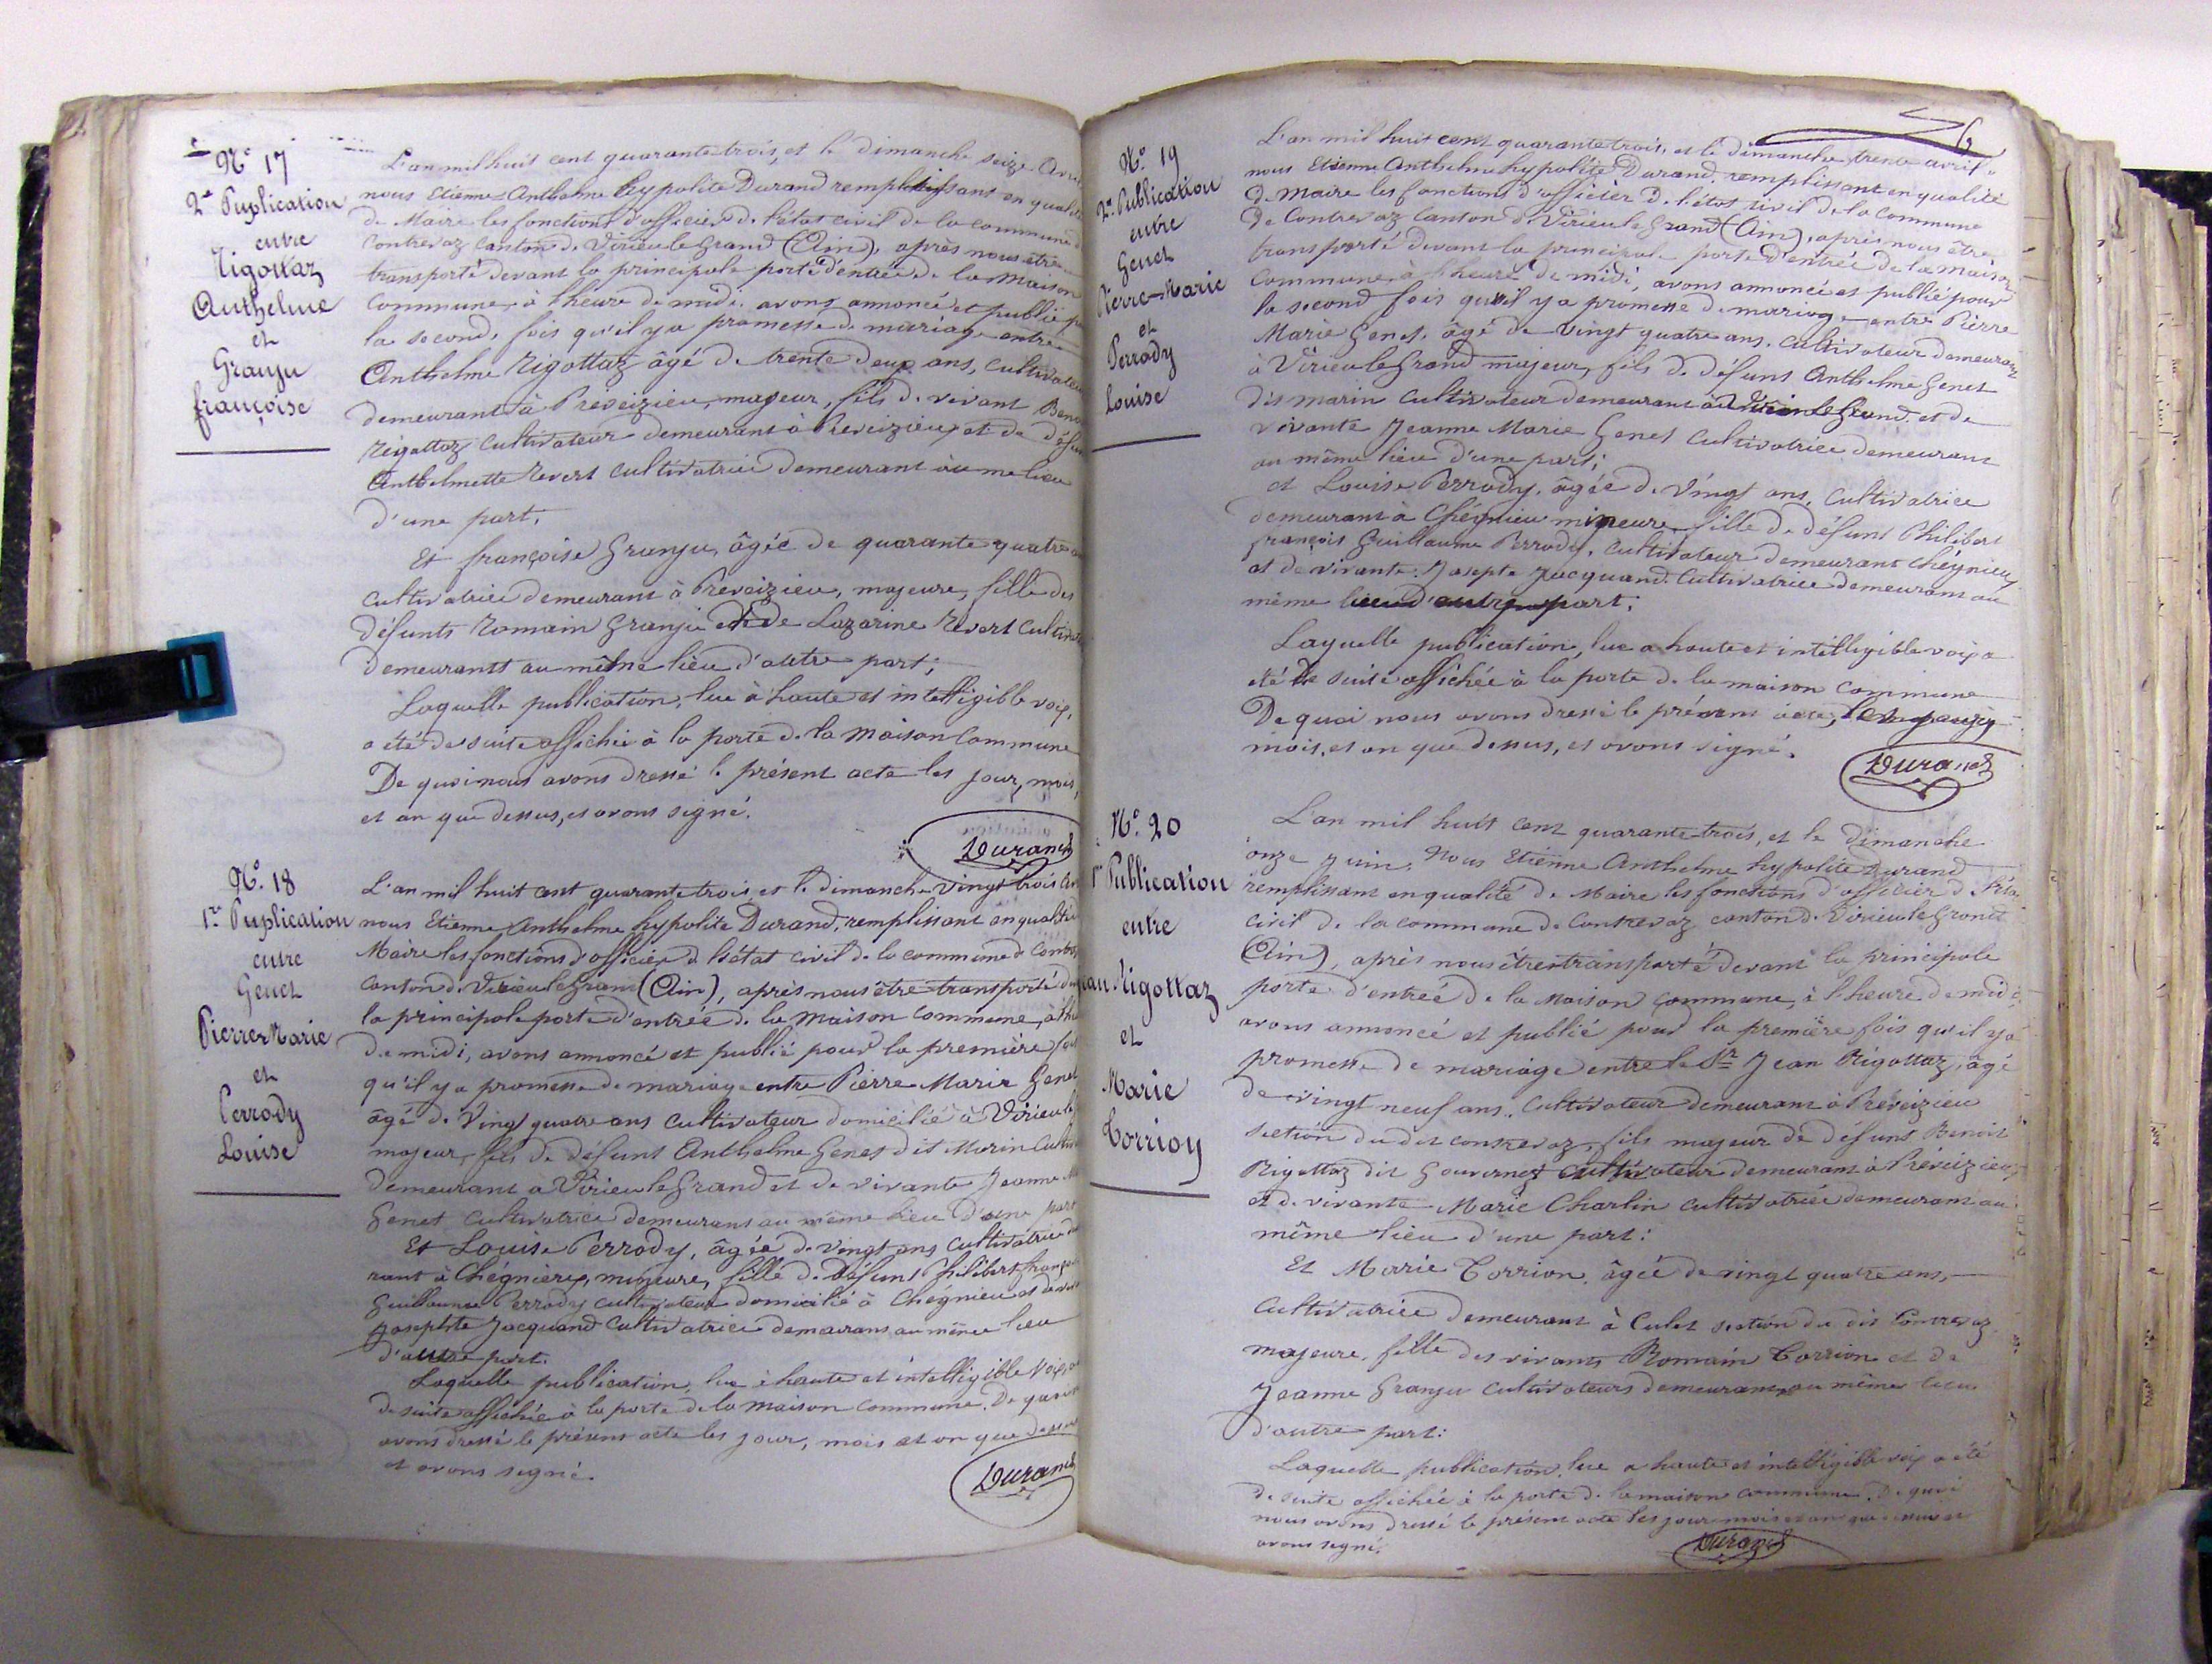 N.° 17
2.e Puplication
entre
Rigottaz
Anthelme
et
Granju
françoise
L'an mil huit cent quarante trois, et le dimanche seize Avril
nous Etienne Anthelme hypolite Durand remplissant en qualité
de Maire les fonctions d'officier de l'état civil de la commune de
Contrevoz canton de Virieu le Grand (Ain), après nous être
transporté devant la principale porte d'entrée de la maison
Commune, à l'heure de midi, avons annoncé et publié pr
la seconde fois qu'il y a promesse de mariage entre
Anthelme Rigottaz âgé de trente deux ans, cultivateur
demeurant à Preveizieu, majeur, fils de vivant Beno
Rigottaz cultivateur demeurant à Preveizieu, et de défun
Anthelmette Revert cultivatrice demeurant au me lieu
d'une part.
Et françoise Granju, âgée de quarante quatre a
cultivatrice demeurant à Preveizieu, majeure, fille des
défunts Romain Granju et de Lazarine Revert cultivat
demeurant au même lieu d'autre part;
Laquelle publication, lue à haute et intelligible voix,
a été de suite affichée à la porte de la maison Commune
De quoi nous avons dressé le présent acte les jour, mois,
et an que dessus, et avons signé.
Durand
N.° 18
1.re Puplication
entre
Genet
Pierre Marie
et
Perrody
Louise
L'an mil huit cent quarante trois, et le dimanche vingt trois avr
nous Etienne Anthelme hypolite Durand, remplissant en qualité
Maire les fonctions d'officier de l'état civil de la commune de Contrev
canton de Virieu le Grand (Ain), après nous être transporté dev
la principale porte d'entrée de la maison commune, à l'heu
de midi, avons annoncé et publié pour la première fois
qu'il y a promesse de mariage entre Pierre Marie Genet
âgé de Vingt quatre ans cultivateur domicilié à Virieu le
majeur, fils de défunt Anthelme Genet dit Marin Cultiv
demeurant a Virieu le Grand et de vivante Jeanne M
Genet cultivatrice demeurant au même lieu d'une part
Et Louise Perrody, âgée de vingt ans cultivatrice dem
rant à Chégnieu, mineure, fille de défunt Philibert françois
Guillaume Perrody cultivateur domicilié à Chegnieu et de viv
Josephte Jacquand cultivatrice demeurant au même lieu
d'autre part.
Laquelle publication, lue à haute et intelligible voix, a
de suite affichée à la porte de la maison commune. De quoi n
avons dressé le présent acte les jour, mois et an que dessus
et avons signé.
Durand
6
N.° 19
2.e Publication
entre
Genet
Pierre-Marie
et
Perrody
Louise
L'an mil huit cent quarante trois, et le dimanche trente avril.
nous Etienne Anthelme hypolite Durand, remplissant en qualité
de Maire les fonctions d'officier de l'état civil de la commune
de Contrevoz canton de Virieu le Grand (Ain), après nous être
transporté devant la principale porte d'entrée de la maison
commune, à l'heure de midi, avons annoncé et publié pour
la second fois qu'il y a promesse de mariage entre Pierre
Marie Genet, âgé de vingt quatre ans, cultivateur demeurant
à Virieu le Grand majeur, fils de défunt Anthelme Genet
dis marin cultivateur demeurant à Virieu le Grand, et de
vivante Jeanne Marie Genet cultivatrice demeurant
au même lieu d'une part;
et Louise Perrody, âgée de vingt ans, cultivatrice
demeurant à Chégnieu mineure, fille de défunt Philibert
françois Guillaume Perrody, cultivateur demeurant Chégnieu,
et de vivante Josepte Jacquand Cultivatrice demeurant au
même lieu d'autre part;
Laquelle publication, lue a haute et intelligible voix a
été de suite affichée à la porte de la maison commune
De quoi nous avons dressé le présent acte, les jours,
mois, et an que dessus, et avons signé.
Durand
N.° 20
1re Publication
entre
Jean Rigottaz
et
Marie
Corrioy
L'an mil huit cent quarante trois, et le dimanche
onze juin, Nous Etienne Anthelme hypolite Durand
remplissant en qualité de Maire les fonctions d'officier de l'état
civil de la commune de Contrevoz canton de Virieu le Grand
(Ain), après nous être transporté devant la principale
porte d'entrée de la Maison commune, à l'heure de midi,
avons annoncé et publié pour la première fois qu'il y a
promesse de mariage entre le Sr Jean Rigottaz, âgé
de vingt neuf ans, cultivateur demeurant à Preveizieu
section du dit contrevoz, fils majeur de défunt Benoit
Rigottaz dit Gouvernet cultivateur demeurant à Préveizieu
et de vivante Marie Charlin cultivatrice demeurant au
même lieu d'une part:
Et Marie Corrion, âgée de vingt quatre ans,
Cultivatrice demeurant à Culet section du dit Contrevoz
majeure, fille des vivants Romain Corrion et de
Jeanne Granju cultivateurs demeurant au même lieu
d'autre part:
Laquelle publication, lue a haute et intelligible voix a été
de suite affichée à la porte de la maison commune. De quoi
nous avons dressé le présent acte les jour mois et an que dessus et
avons signé.
Durand